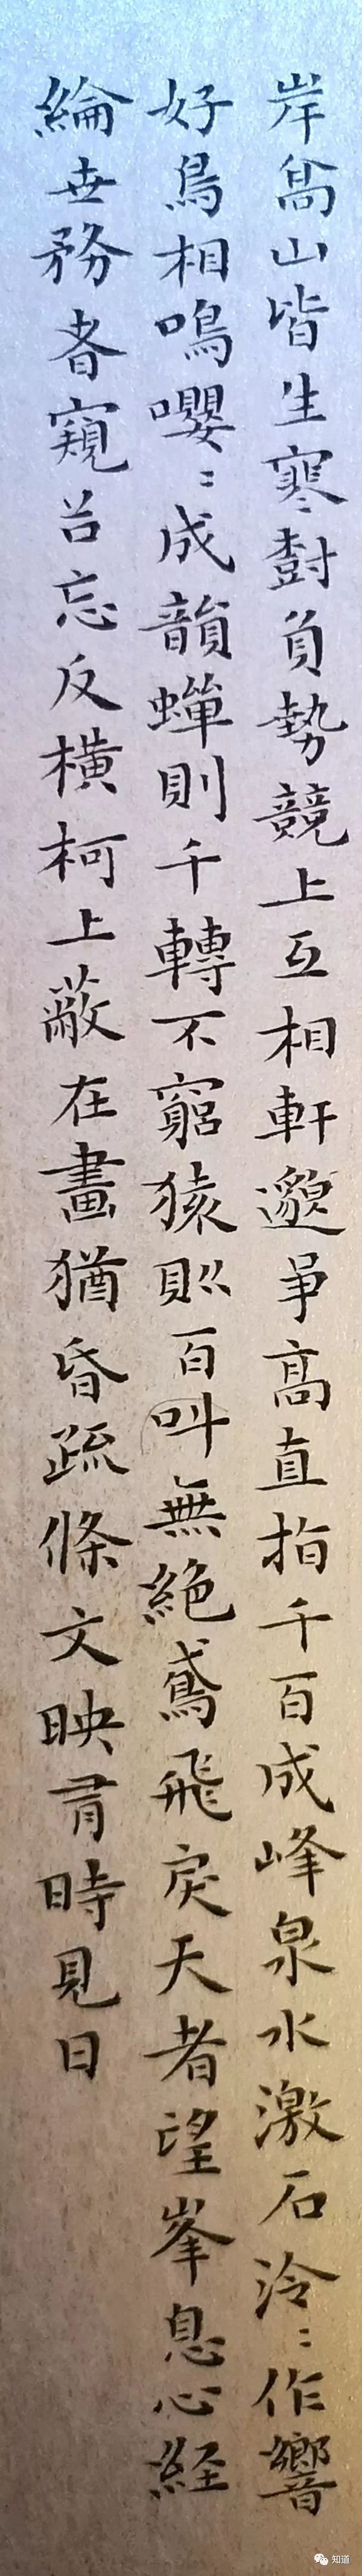 岸髙山皆生寒對負勢競上互相軒邈爭髙直指千百成峰泉水激石泠〻作響
好鳥相鳴嚶〻成韻蟬則千轉不窮猿則百叫無絕鳶飛戾天者望峯息心経
綸世務者窺谷忘反橫柯上蔽在晝猶昏疏條交映有時見日
知道